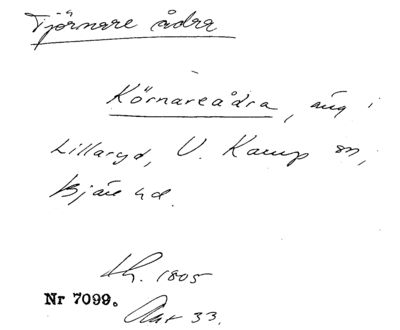 Tjärnare ådra
Körnareådra, äng i
Lillaryd, V. Karup sn,
Bjäre hd.
Lh. 1805
Nr 7099.
Akt 33.